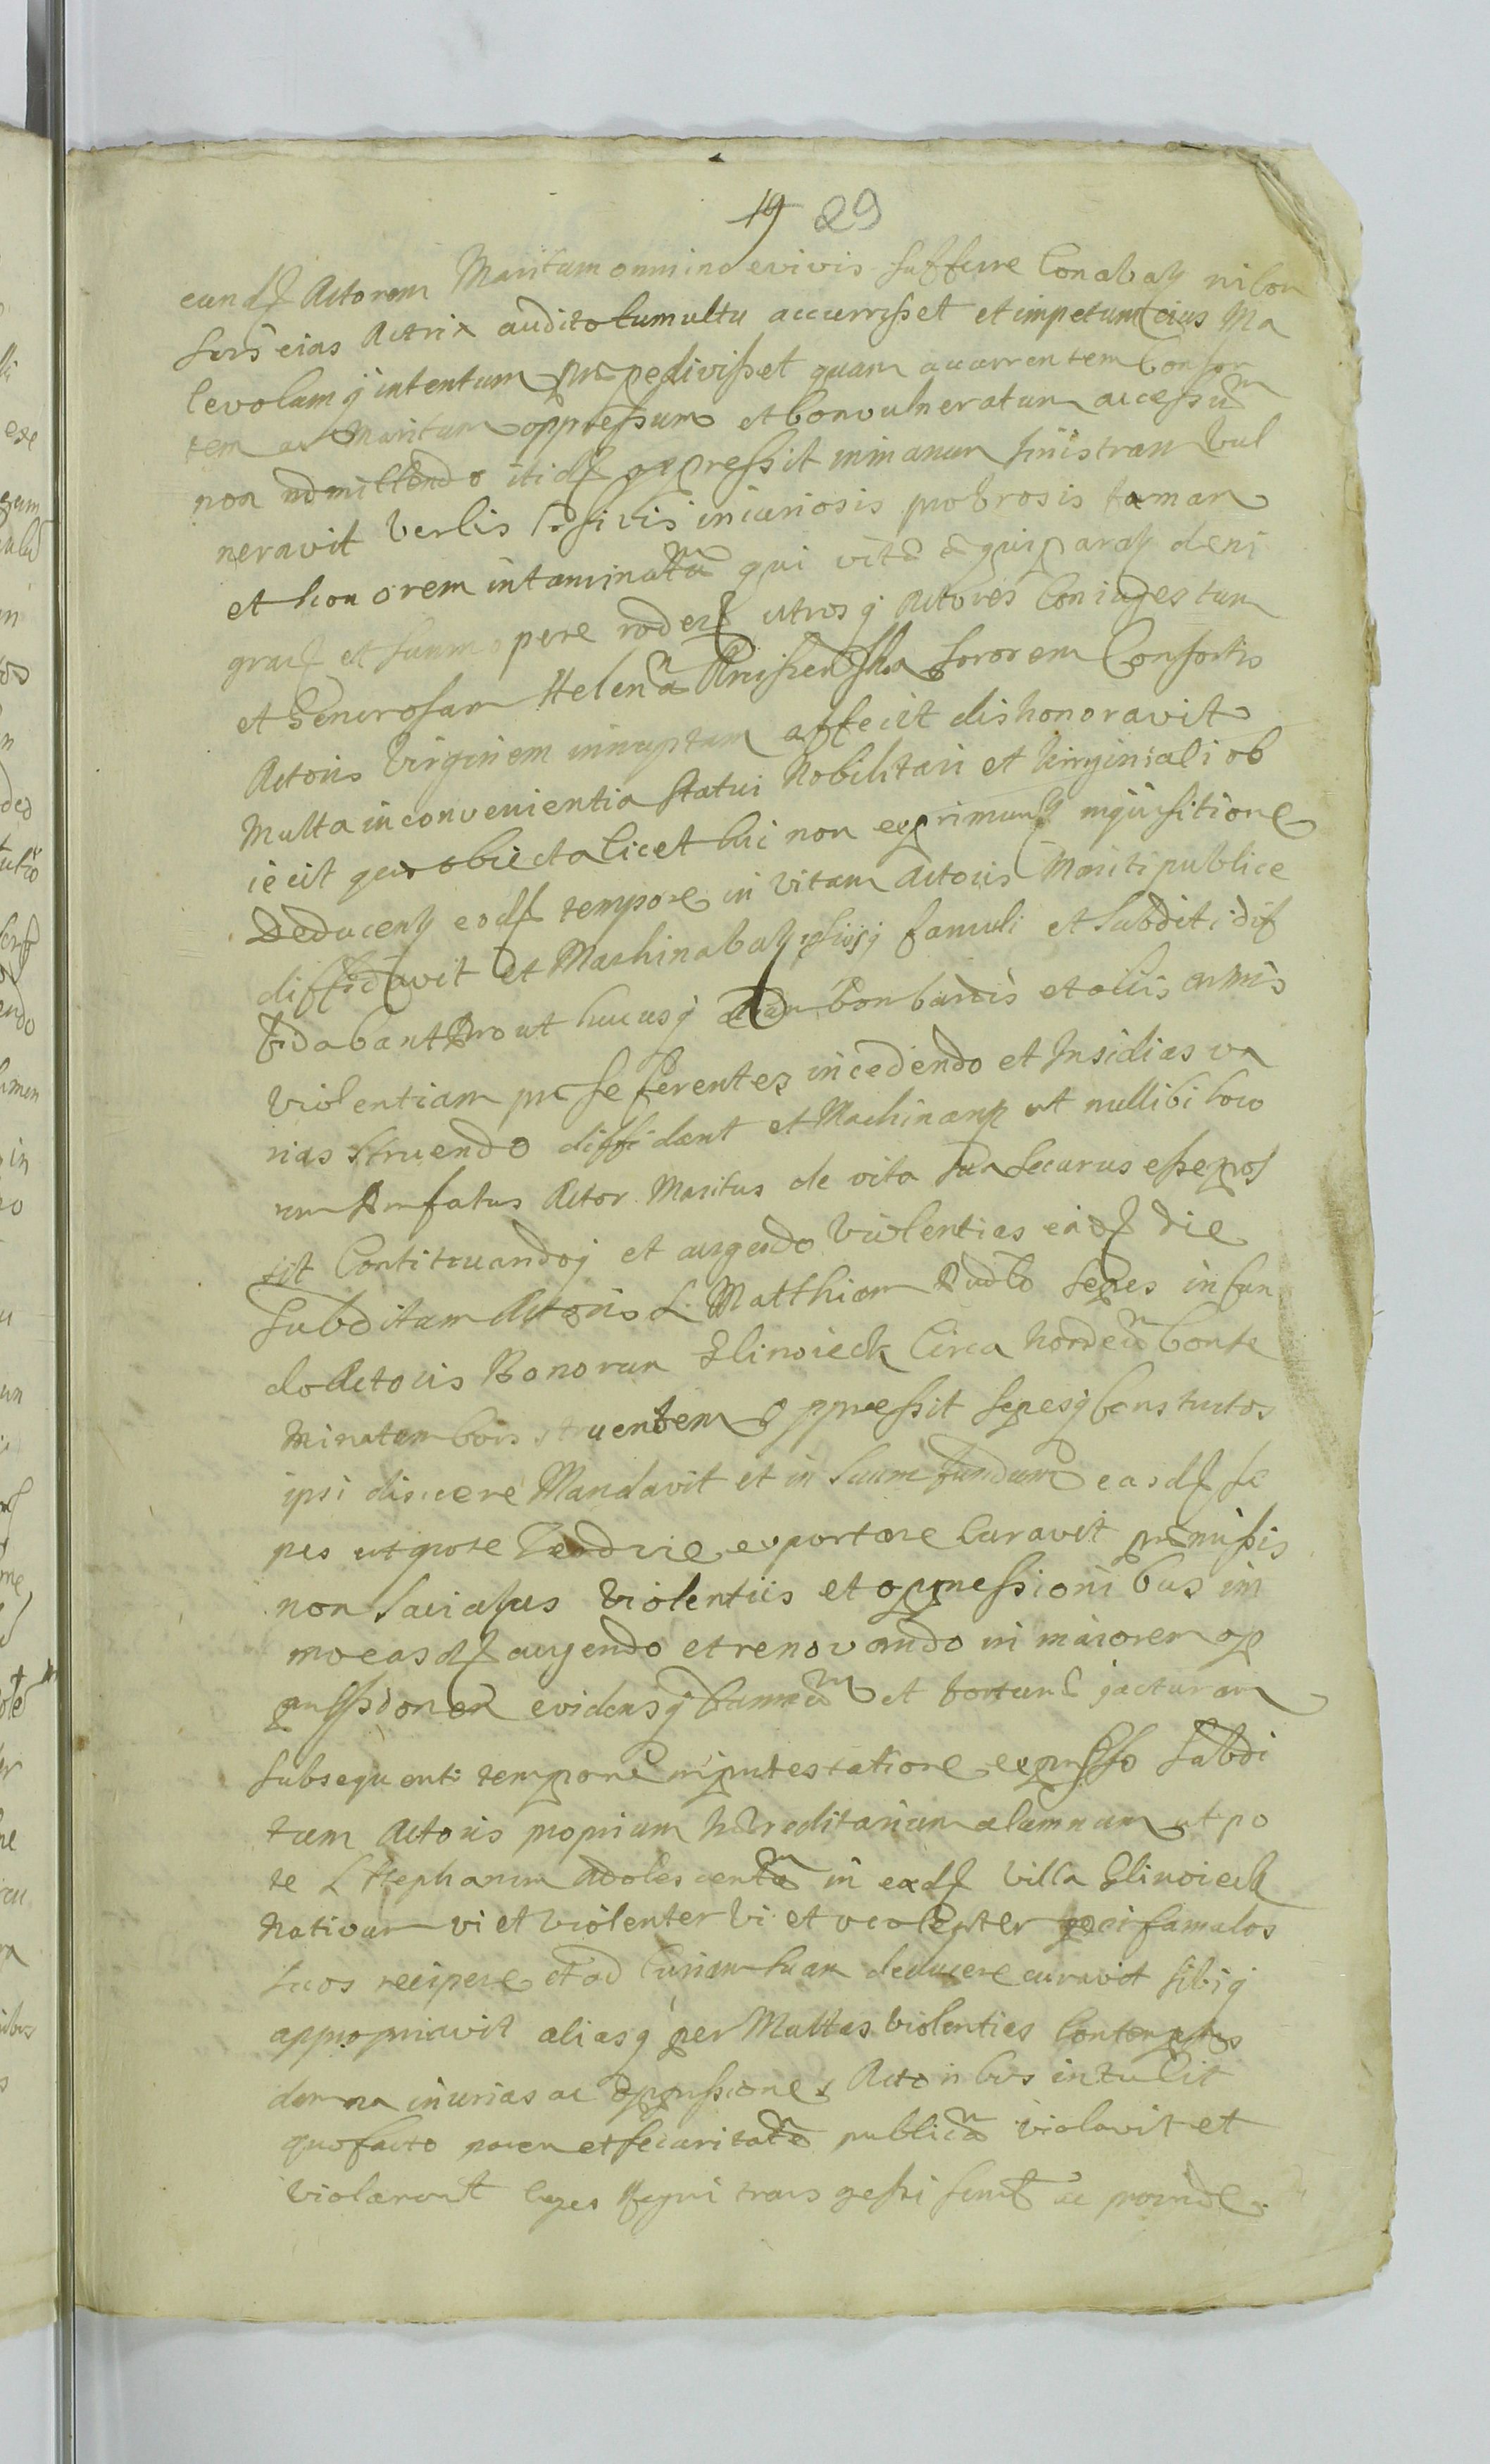 19 29
eundz Actorem Maritum omnino e vivis sufferre Conabatz ni Con
sors eius Actrix audito tumultu accurrisset et impetum eius Ma
levolamq intentum præpedivisset quam accurrentem Consor
tem ac Maritum oppressum et Convulneratum accessum
non admittendo itidz repressit in manum sinistram vul
neravit verbis lesivis iniuriosis probrosis famam
et honorem intaminatum qui vitæ æquiparatz deni
gratz et summopere rodentz utrosq Actores Coniuges tum
et Generosam Helenam sororem Consortis
Actoris Virginem innuptam affecit dishonoravit
Multa inconvenientia statui Nobilitari et Virginiali ob
iecit quæ obiecta licet hic non exprimuntz inquisitione
Deducentz eodz tempore in vitam Actoris Mariti publice
diffidavit et Machinabatz ipsiusq famuli et subditi dif
fidabant Prout hucusq cum bombardis et aliis armis
violentiam præ se ferentes incedendo et Insidias va
rias struendo diffidant et Machinantz ut nullibi loco
rum Præfatus Actor Maritus de vita sua securus esse pos
sit Continuandoq et augendo Violentias eadz die
Subditum Actoris L. Matthiam sepes in fun
do Actoris Bonorum Glinwieck Circa hordeum Conse
minatum construentem oppressit sepesq constructos
ipsi disicere Mandavit et in suum fundum easdz se
pes utpote exportare Curavit præmissis
non saciatus Violentiis et oppressionibus im
mo easdz augendo et renovando in maiorem op
pressionem evidensq damnum et fortunæ jacturam
subsequenti tempore in protestatione expresso Subdi
tum Actoris proprium hæreditarium alumnum utpo
te L Stephanum Adolescentem in eadz villa Glinwieck
Nativum vi et violenter vi et violenter per famulos
suos recipere et ad Curiam suam deducere curavit sibiq
appropriavit aliasq per Multas violentias Contemptus
damna iniurias ac oppressiones Actoribus intulit
quo facto pacem et securitatem publicam violavit et
violarunt leges Regni transgressi sunt ac proinde